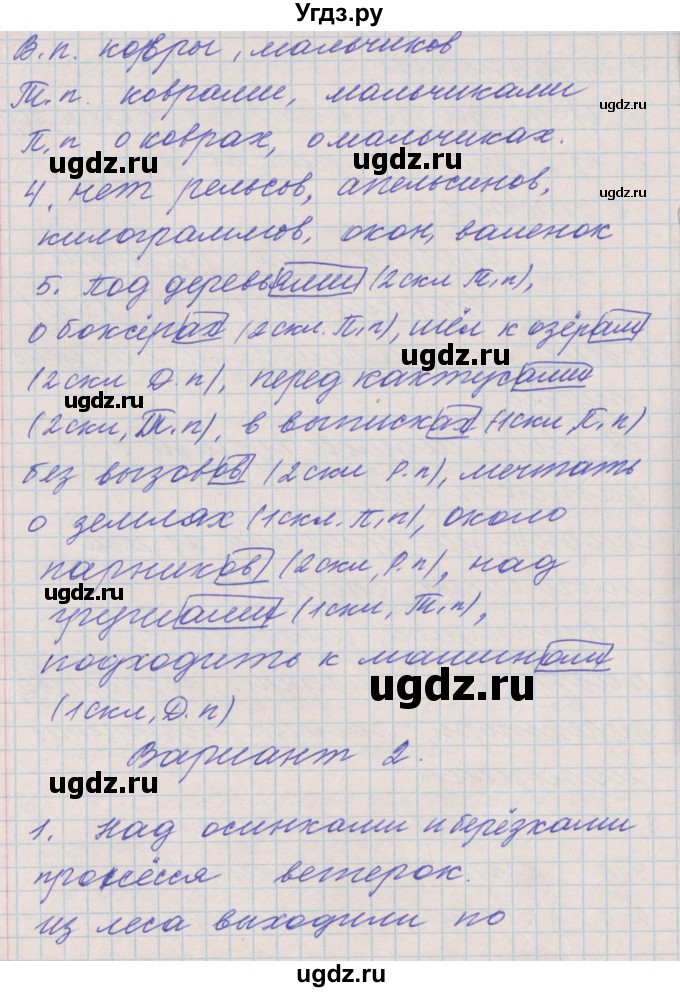 Угдз.ру
В.п. ковры, мальчиков
Т.п. коврами, мальчиками
ugdz.ru
П.п о коврах, о мальчиках.
ugdz.ru ugdz.ru
4. нет рельсов, апельсинов,
ugdz.ru
килограммов, окон, валенок
5. Под деревьями (2скл Т.п),
о боксёрах (2скл. П.п), шёл к озёрам
ugdz.ru
(2скл Д.п), перед кактусами
ugdz.ru
(2скл, Т.п), в выписках (1скл, П.п)
без вызовов (2скл Р.п), мечтать
ugdz.ru
о землях (1скл. П.п), около
парников (2скл, Р.п), над
ugdz.ru
грушами (1скл, Т.п),
подходить к машинам
ugdz.ru
(1скл, Д.п)
Вариант 2.
ugdz.ru
1. Над осинками и берёзками
пронёсся ветерок.
ugdz.ru
Из леса выходили по
ugdz.ru